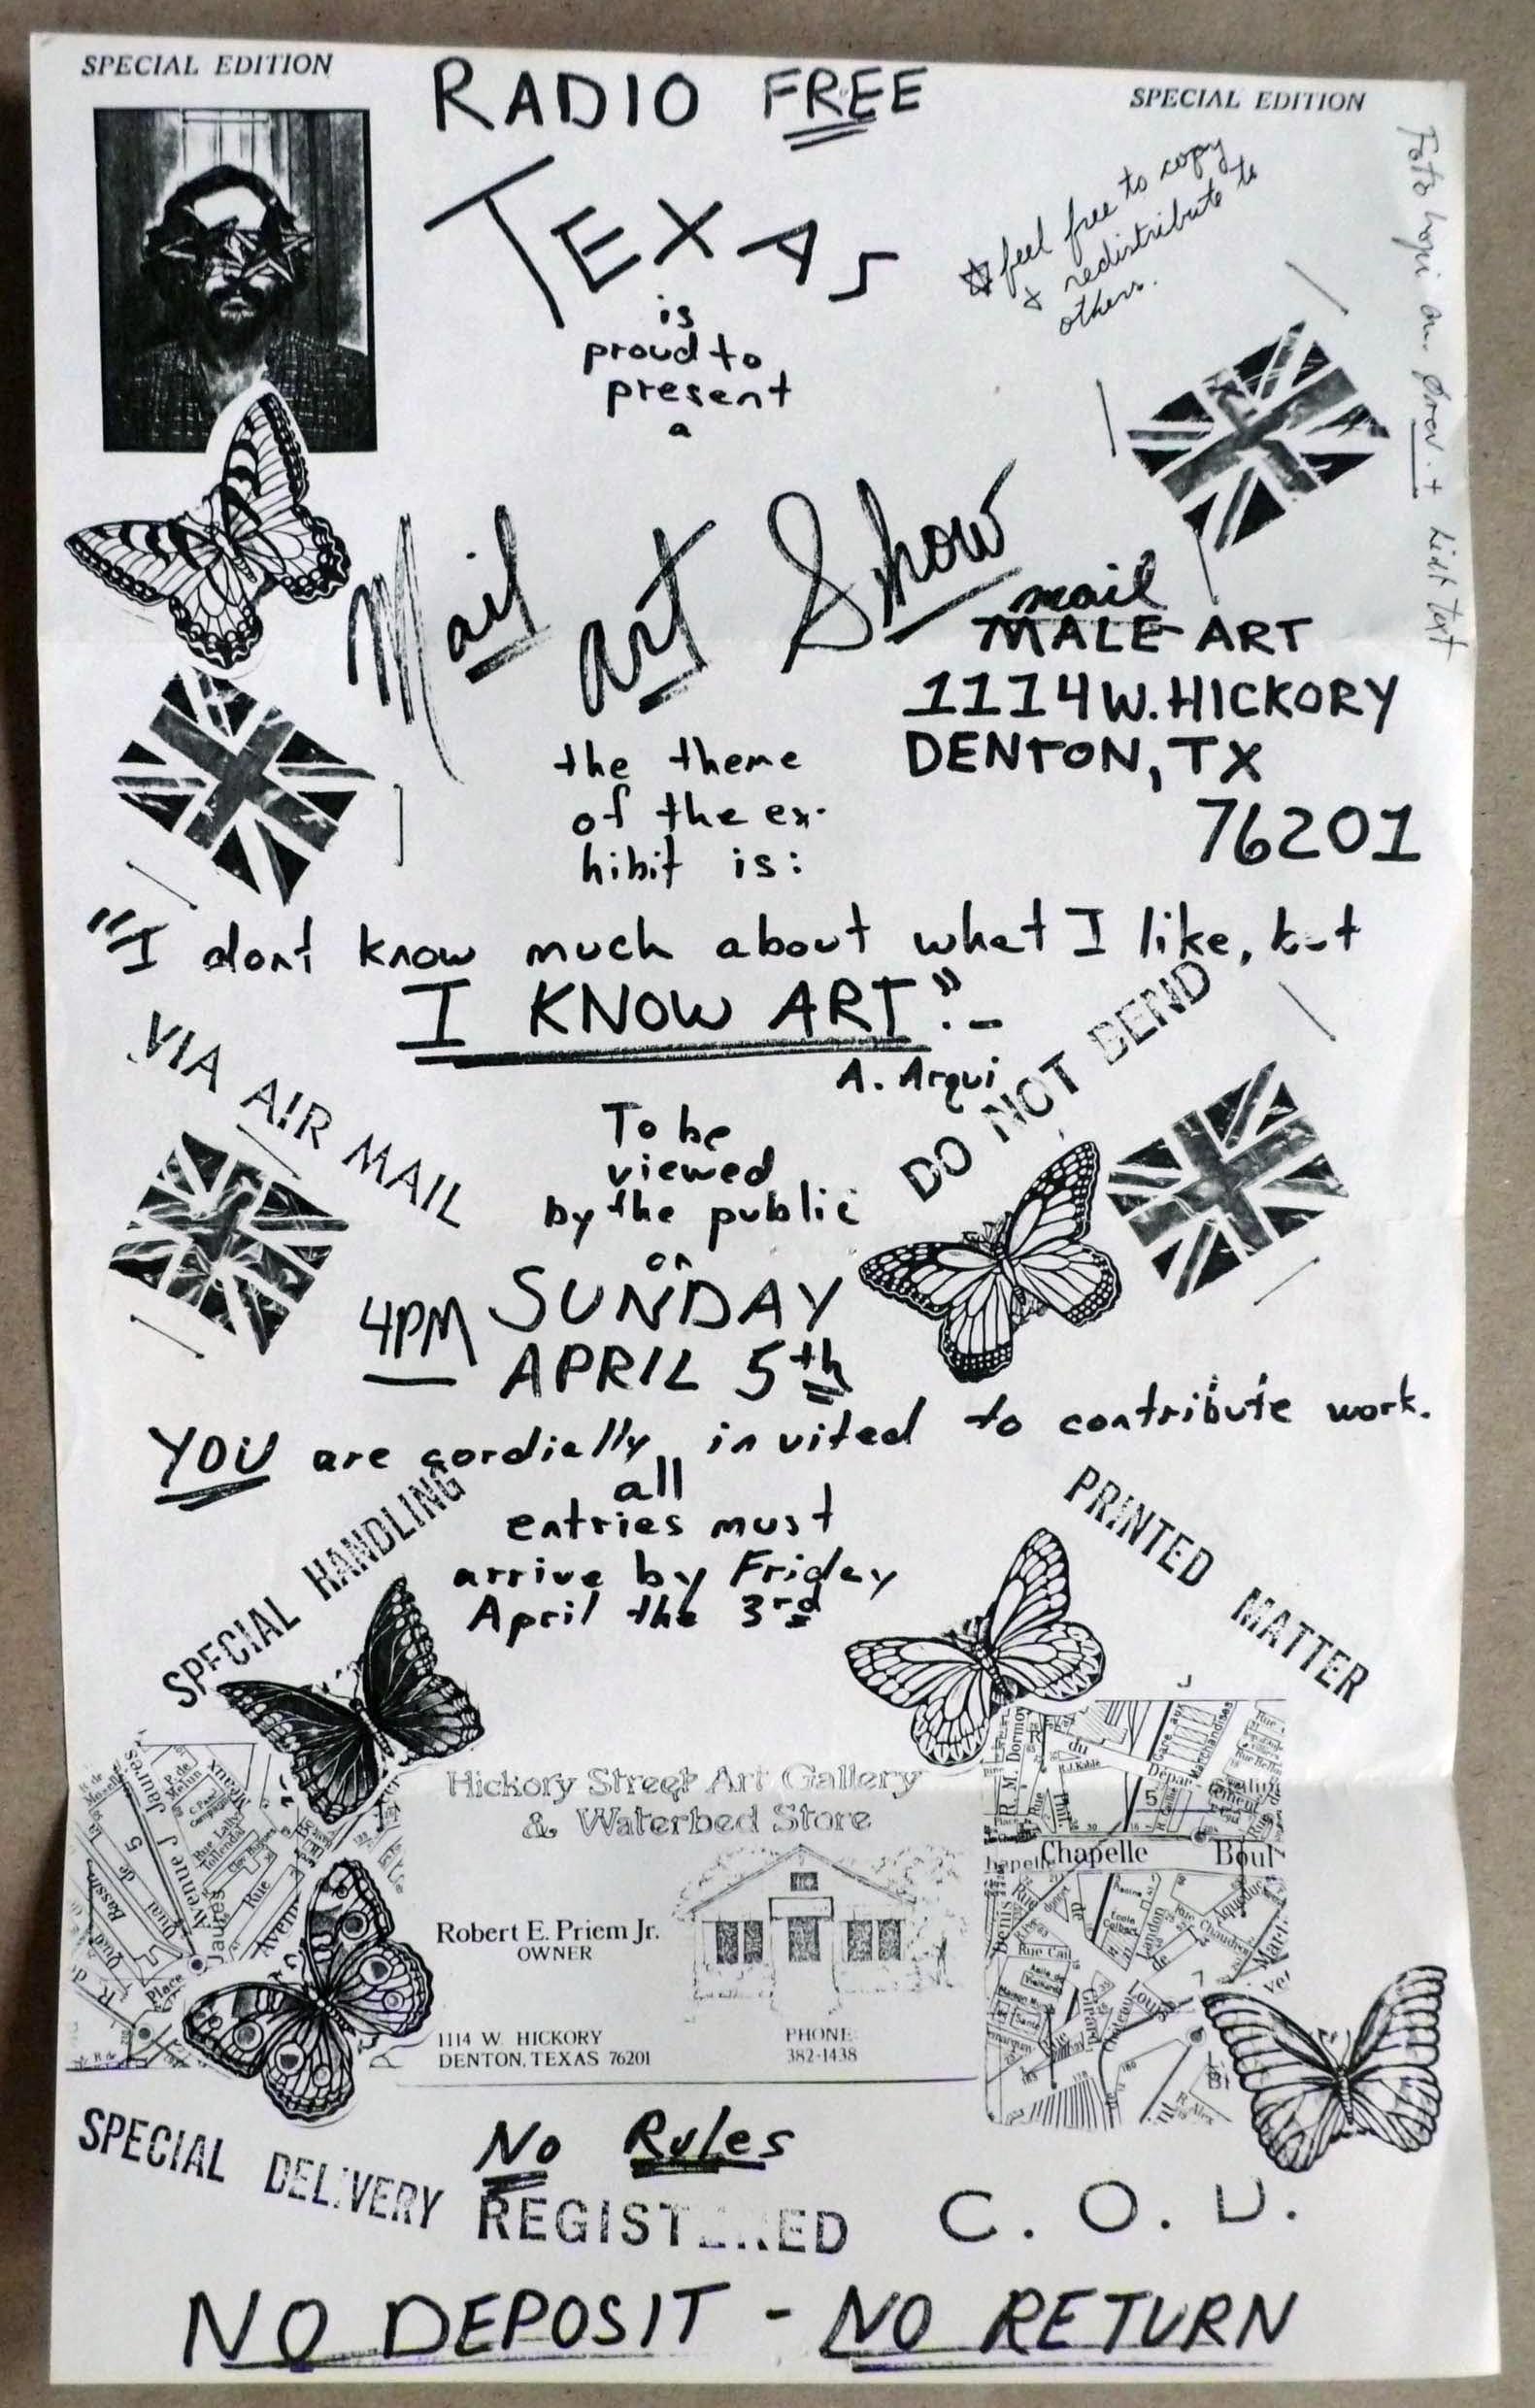 SPECIAL EDITION
RADIO FREE
SPECIAL EDITION
TEXAS
feel free to copy
+ redistribute to
others.
is
proud to
present
a
Mail art Show
mail
MALE ART
1114 W. HICKORY
DENTON, TX
76201
the theme
of the ex-
hibit is:
"I dont know much about what I like, but
I KNOW ART".-
A. Arqui
VIA AIR MAIL
DO NOT BEND
To be
viewed
by the public
on
4PM SUNDAY
APRIL 5th
YOU are cordially invited to contribute work.
all
entries must
arrive by Friday
April the 3rd
SPECIAL HANDLING
PRINTED MATTER
Hickory Street Art Gallery
& Waterbed Store
Robert E. Priem Jr.
OWNER
1114 W. HICKORY
DENTON, TEXAS 76201
PHONE:
382-1438
Avenue J Jaures
Rue Lally
Tollendal
Rue
Jaures
Place
R. M. Dormoy
du
Départ
Marchandises
5
Chapelle Boul
Rue Cail
de
Aqueduc
SPECIAL DELIVERY
No Rules
REGISTERED
C. O. D.
NO DEPOSIT - NO RETURN